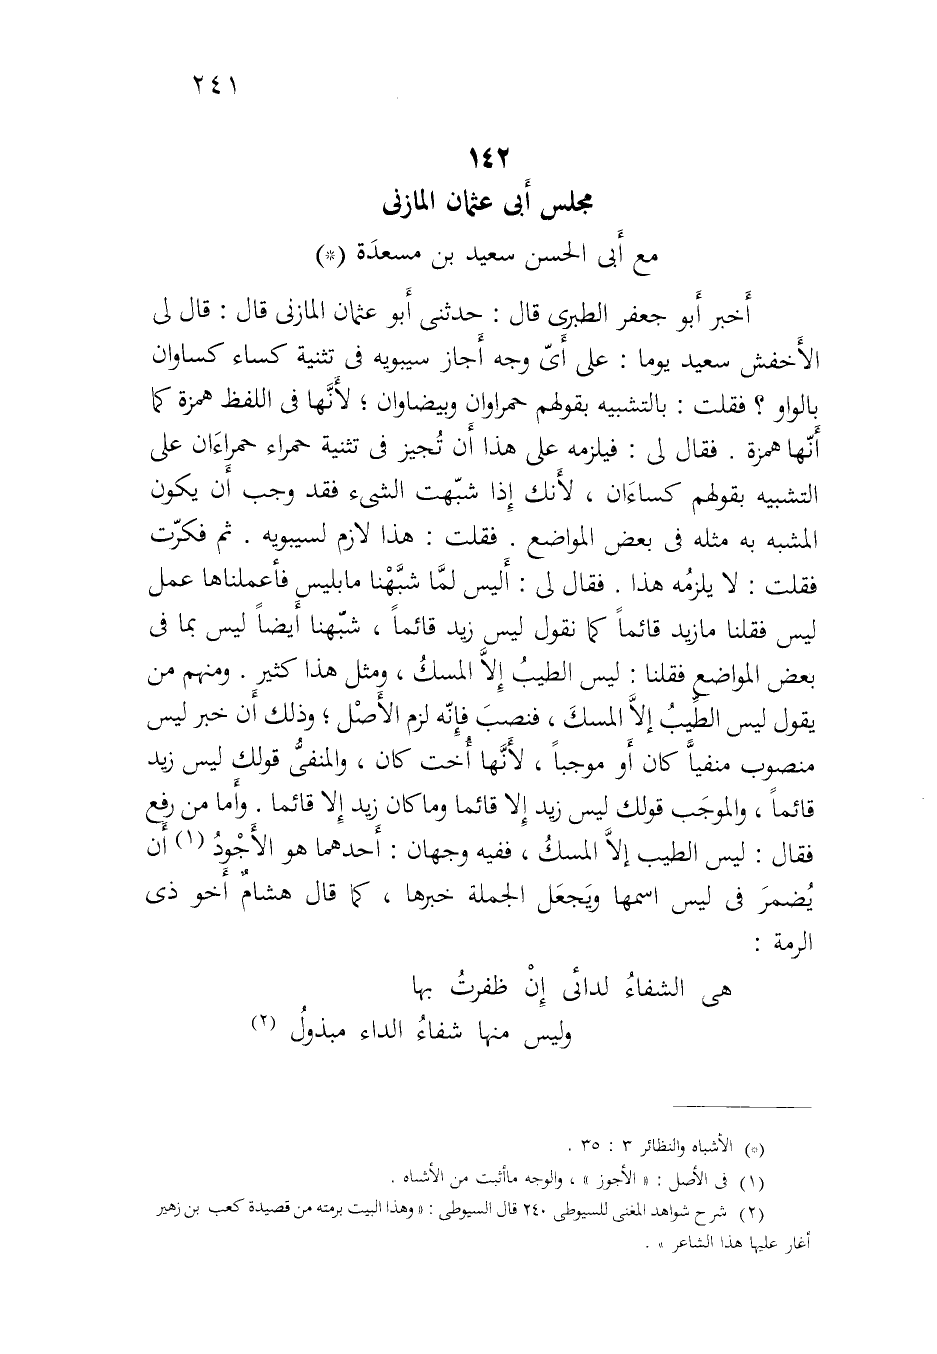 ٢٤١
١٤٢
مجلس أَبى عثمان المازنى
مع أَبى الحسن سعيد بن مسعدَة (*)
أَخبر أَبو جعفر الطبرى قال : حدثنى أَبو عثمان المازنى قال : قال لى
الأَخفش سعيد يوما : على أَىّ وجه أَجاز سيبويه فى تثنية كساء كساوان
بالواو ؟ فقلت : بالتشبيه بقولهم حمراوان وبيضاوان ؛ لأَنَّها فى اللفظ همزة كما
أَنّها همزة . فقال لى : فيلزمه على هذا أَن تُجيز فى تثنية حمراء حمراءَان على
التشبيه بقولهم كساءَان ، لأَنك إِذا شبّهت الشىء فقد وجب أَن يكون
المشبه به مثله فى بعض المواضع . فقلت : هذا لازم لسيبويه . ثم فكرّت
فقلت : لا يلزمُه هذا . فقال لى : أَليس لمَّا شبَّهْنا مابليس فأَعملناها عمل
ليس فقلنا مازيد قائماً كما نقول ليس زيد قائماً ، شبّهنا أَيضاً ليس بما فى
بعض المواضع فقلنا : ليس الطيبُ إِلاَّ المسكُ ، ومثل هذا كثير . ومنهم من
يقول ليس الطِّيبُ إِلاَّ المسكَ ، فنصبَ فإِنّه لزم الأَصْل ؛ وذلك أَن خبر ليس
منصوب منفياًّ كان أَو موجباً ، لأَنَّها أُخت كان ، والمنفىُّ قولك ليس زيد
قائماً ، والموجَب قولك ليس زيد إِلا قائما وماكان زيد إِلا قائما . وأَما من رفع
فقال : ليس الطيب إِلاَّ المسكُ ، ففيه وجهان : أَحدهما هو الأَجْودُ (١) أَن
يُضمرَ فى ليس اسمها ويَجعَل الجملة خبرها ، كما قال هشامٌ أَخو ذى
الرمة :
هى الشفاءُ لدائى إِنْ ظفرتُ بها
وليس منها شفاءُ الداء مبذولُ (٢)
(*) الأشباه والنظائر ٣ : ٣٥ .
(١) فى الأصل : « الأجوز » ، والوجه ماأثبت من الأشباه .
(٢) شرح شواهد المغنى للسيوطى ٢٤٠ قال السيوطى : « وهذا البيت برمته من قصيدة كعب بن زهير
أغار عليها هذا الشاعر » .